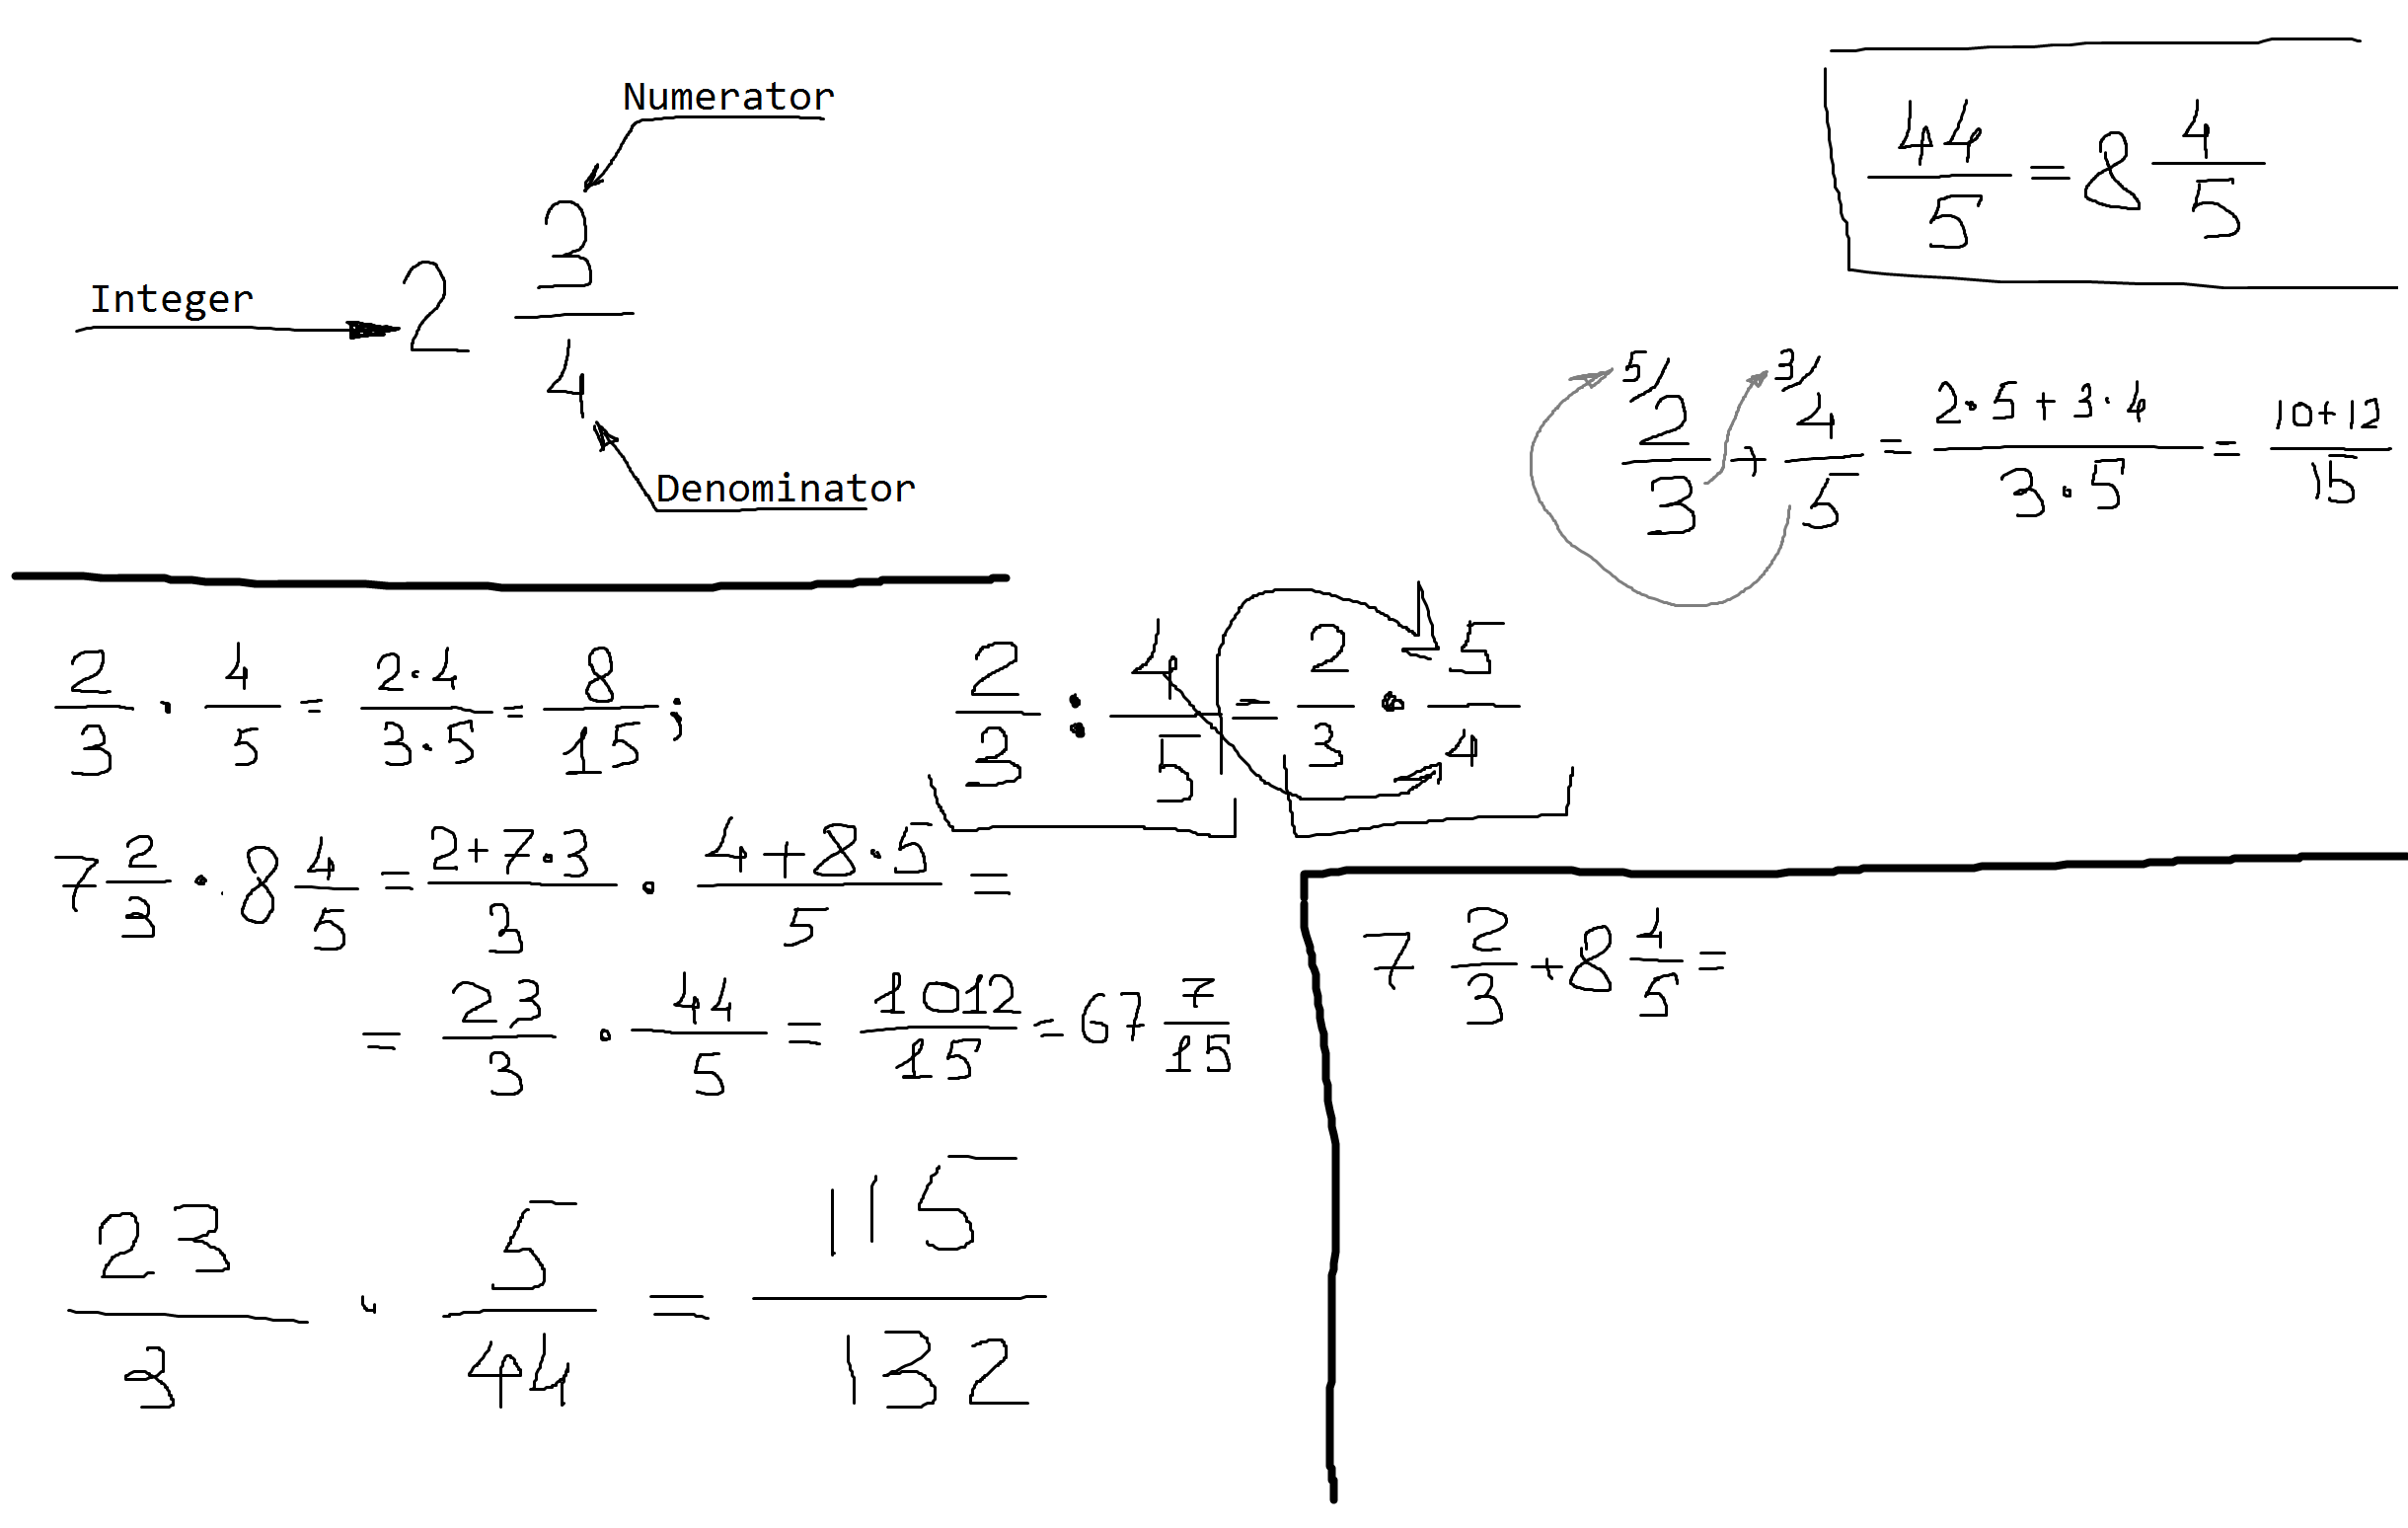 Numerator
Integer → 2 3/4
Denominator
44/5 = 8 4/5
5/ 3/
2/3 + 4/5 = (2·5+3·4)/(3·5) = (10+12)/15
2/3 · 4/5 = (2·4)/(3·5) = 8/15;
2/3 : 4/5 = 2/3 · 5/4
7 2/3 · 8 4/5 = (2+7·3)/3 · (4+8·5)/5 =
= 23/3 · 44/5 = 1012/15 = 67 7/15
23/3 · 5/44 = 115/132
7 2/3 + 8 4/5 =